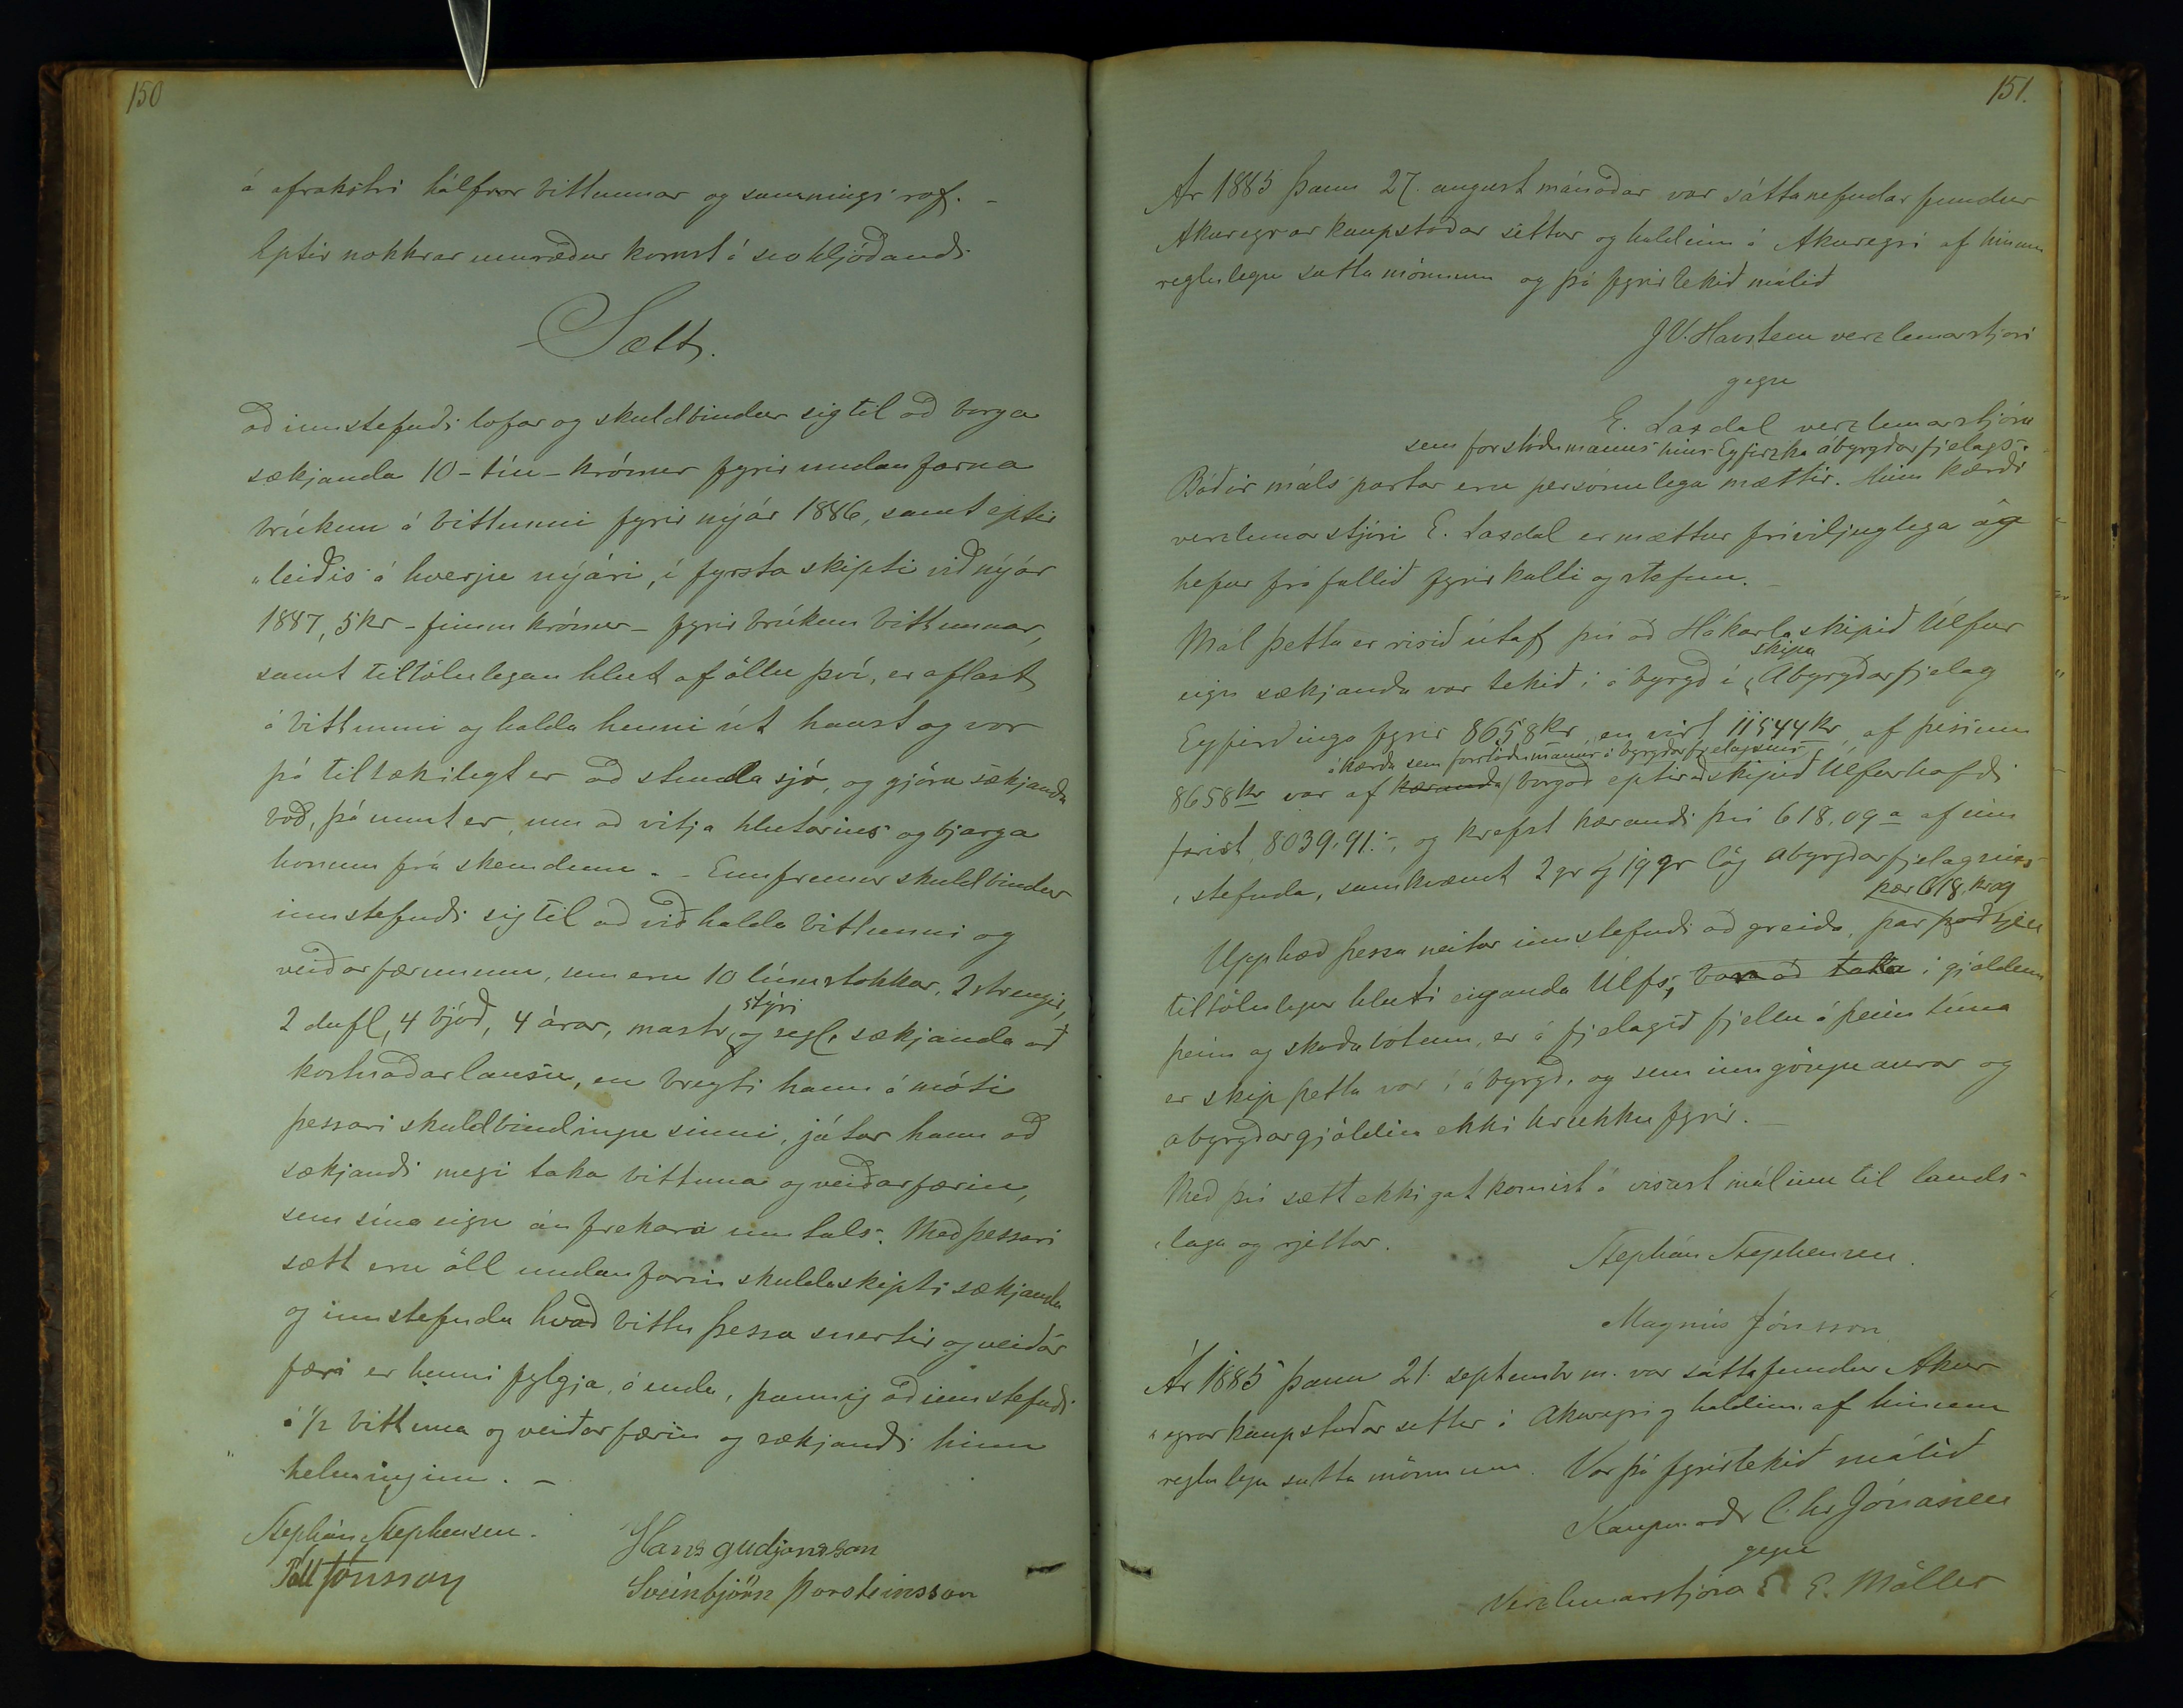 150
á afrakstri hálfrar bittunnar og samningsrof. -
Eptir nokkrar umræður komst á svo hljóðandi
Sætt.
að innstefndi lofar og skuldbindur sig til að borga
sækjanda 10 - tíu - krónur fyrir undanfarna
brúkun á bittunni fyrir nýár 1886, samt eptir
"leiðis á hverju nýári, í fyrsta skipti við nýár
1887, 5 kr - fimm krónur - fyrir brúkun bittunnar,
samt tiltölulegan hlut af öllu því, er aflast
á bittunni og halda henni út haust og vor
þá tiltækilegt er að stunda sjó, og gjöra sækjanda
boð, þá unnt er, um að vitja hlutarins og bjarga
honum frá skemdum. - Ennfremur skuldbindur
innstefndi sig til að viðhalda bittunni og
veiðarfærunum, sem eru 10 línustokkar, 2 strengir,
2 dufl, 4 bjóð, 4 árar, mastr, stýri og segl, sækjanda að
kostnaðarlausu, en breyti hann á móti
þessari skuldbindingu sinni, játar hann að
sækjandi megi taka bittuna og veiðarfærin,
sem sína eign án frekara umtals. Með þessari
sætt eru öll undanfarin skuldaskipti sækjanda
og innstefnda hvað bittu þessa snertir og veiðar
færi er henni fylgja, á enda, þannig að innstefndi
á 1/2 bittuna og veiðarfærin og sækjandi hinn
helminginn. -
Stephán Stephensen.
Hans Guðjonsson
Páll Jónsson
Sveinbjörn Þorsteinsson
151.
Ár 1885 þann 27. august mánaðar var sáttanefndar fundur
Akureyrar kaupstaðar settur og haldinn á Akureyri af hinum
reglulegu sáttamönnum og þá fyrirtekið málið
J.V. Havsteen verzlunarstjóri
gegn
E. Laxdal verzlunarstjóra
sem forstöðumanns hins Eyfirzka ábyrgðarfjelags.
Báðir málspartar eru persónulega mættir. Hinn kærði
verzlunarstjóri E. Laxdal er mættur fríviljuglega og
hefur frá fallið fyrirkalli og stefnu. -
Mál þetta er risið útaf því að Hákarlaskipið Úlfur
eign sækjanda var tekið í ábyrgð í skipa Abyrgðarfjelag
Eyfirðinga fyrir 8658 kr, en virt 11544 kr, af þessum
ákærða sem forstöðumanni ábyrgðarfjelagsins
8658 kr var af kæranda borgað eptir að skipið Úlfur hafði
farist, 8039,91.-, og krefst kærandi því 618,09 a af inn
"stefnda, samkvæmt 2 gr og 19 gr lög abyrgðarfjelagsins
Upphæð þessa neitar innstefndi að greiða, þar það sjeu þær 618, kr 09
tiltölulegur hluti eiganda Úlfs, bar að taka í gjöldum
þeim og skaðabótum, er á fjelagið fjellu á þeim tíma
er skip þetta var í ábyrgð, og sem inngöngu aurar og
abyrgðargjöldin ekki hrukku fyrir. -
Með því sætt ekki gat komist á vísast málinu til lands-
"laga og rjettar.
Stephán Stephensen.
Magnús Jónsson
Ár 1885 þann 21. septembr m. var sáttafundur Akur
"eyrar kaupstaðar settur á Akureyri og haldinn af hinum
reglulegu sáttamönnum. Var þá fyrirtekið málið
Kaupmaðr Chr Jónasen
gegn
Verzlunarstjóra E. E. Möller